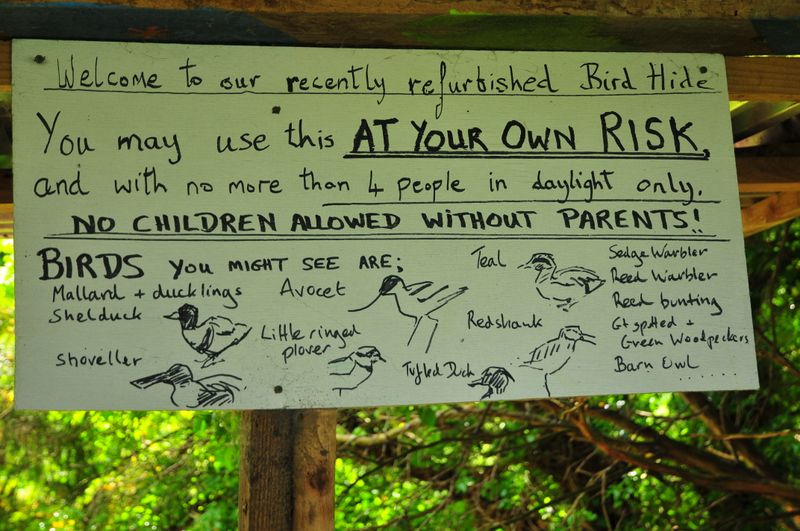 Welcome to our recently refurbished Bird Hide
You may use this AT YOUR OWN RISK,
and with no more than 4 people in daylight only.
NO CHILDREN ALLOWED WITHOUT PARENTS!
BIRDS YOU MIGHT SEE ARE;
Mallard + ducklings
Shelduck
Shoveller
Avocet
Little ringed
plover
Tufted Duck
Teal
Redshank
Sedge Warbler
Reed Warbler
Reed bunting
Gt spotted +
Green Woodpeckers
Barn Owl ......